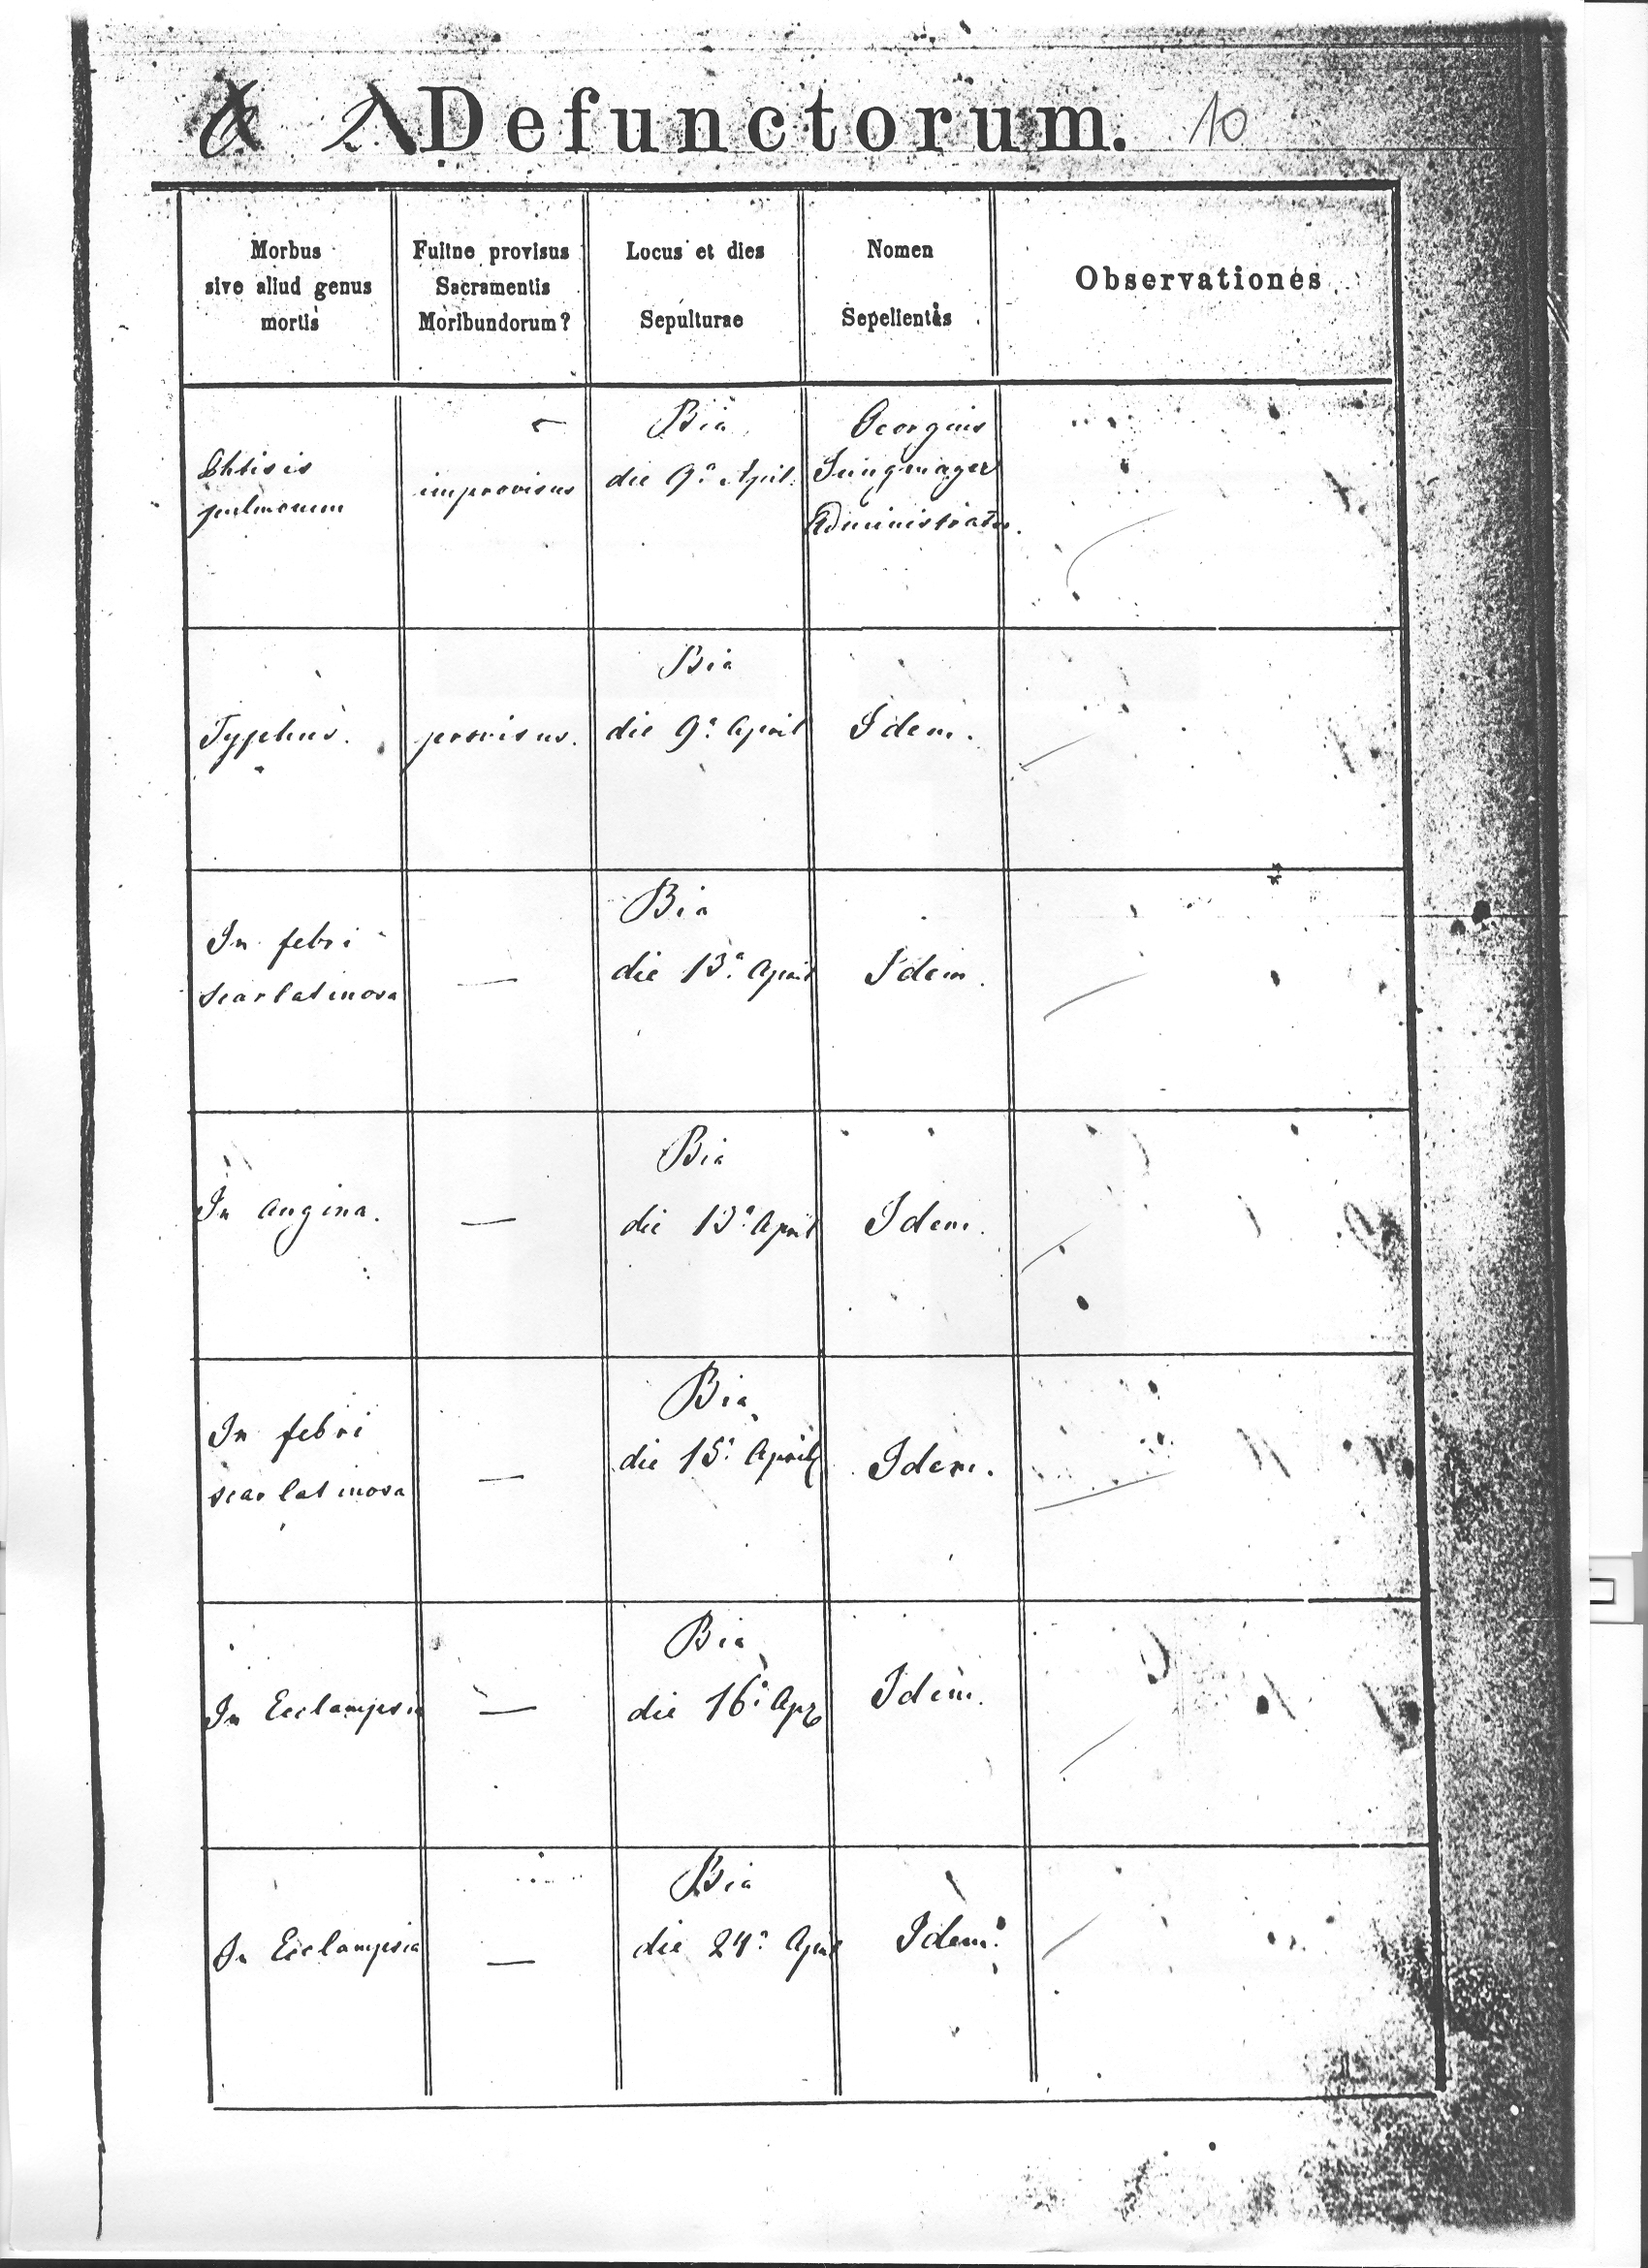 Defunctorum. 10
Morbus
sive aliud genus
mortis
Fuitne provisus
Sacramentis
Moribundorum?
Locus et dies
Sepulturae
Nomen
Sepelientis
Observationes
Phtisis
pulmonum
improvisus
Bia
die 9a April.
Georgius
Jungmayer
Administrator.
Typhus.
provisus.
Bia
die 9a April
Idem.
In febri
scarlatinosa
—
Bia
die 13a April
Idem.
In angina.
—
Bia
die 13a April
Idem.
In febri
scarlatinosa
—
Bia
die 15a April
Idem.
In Ecclampsia
—
Bia
die 16a Apr
Idem.
In Ecclampsia
—
Bia
die 24a April
Idem.